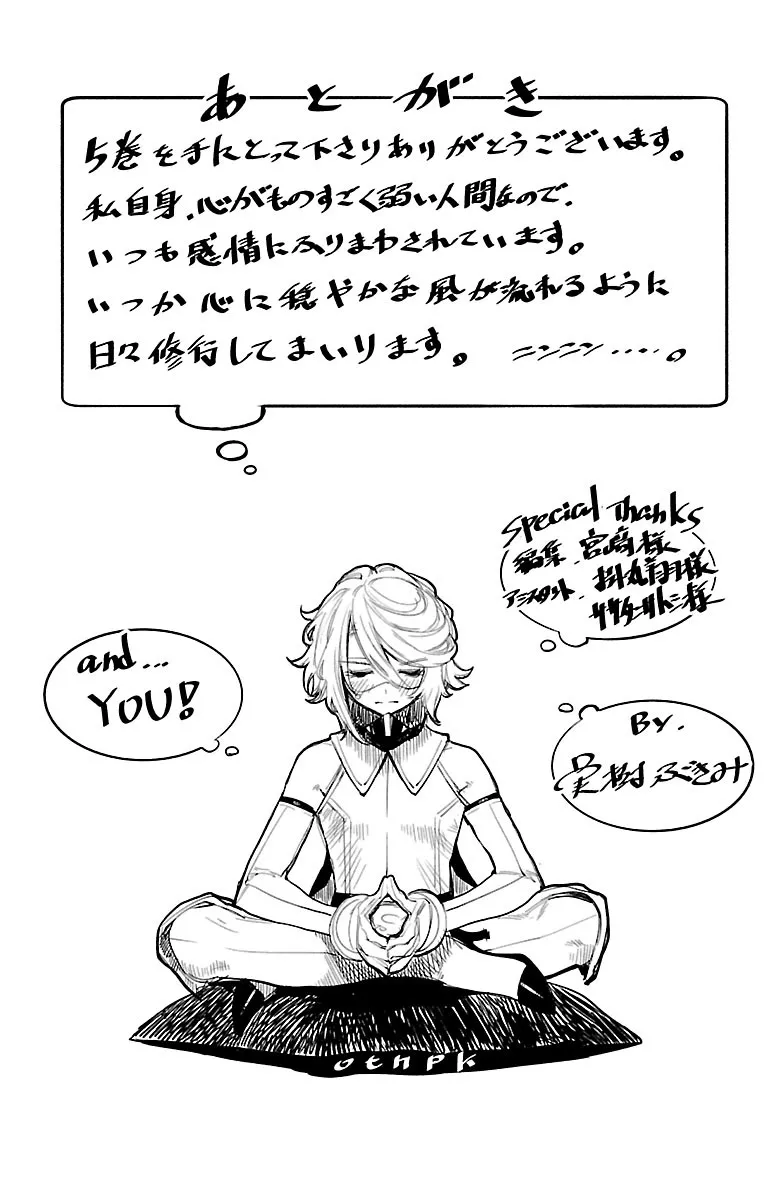 あとがき
5巻を手にとって下さりありがとうございます。
私自身、心がものすごく弱い人間なので、
いつも感情にふりまわされています。
いつか心に穏やかな風が流れるように
日々修行してまいります。 ニンニン‥‥。
Special Thanks
編集 宮崎様
アシスタント
様
様
and...
YOU!
By.
樹ぶきみ
othpk